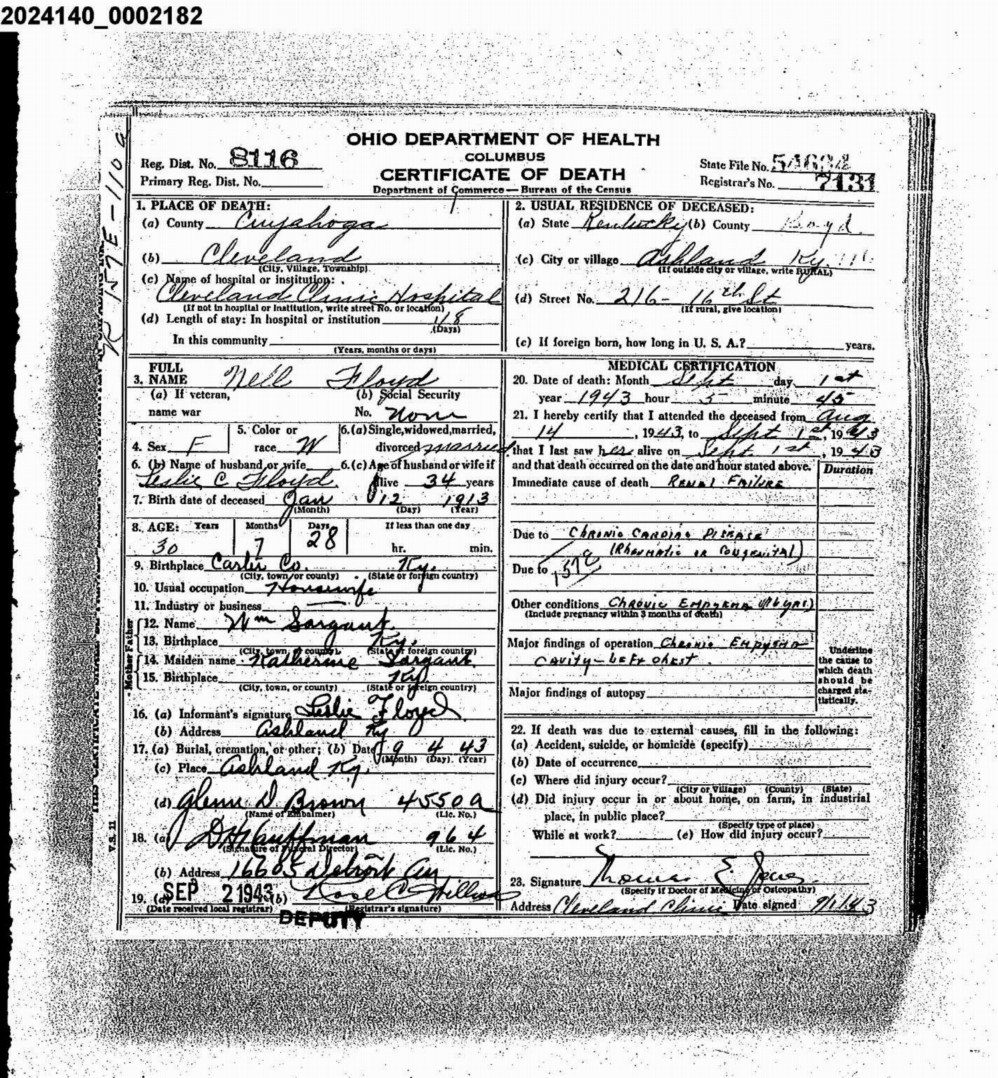 2024140_0002182
OHIO DEPARTMENT OF HEALTH
COLUMBUS
CERTIFICATE OF DEATH
Department of Commerce — Bureau of the Census
Reg. Dist. No. 8116
Primary Reg. Dist. No.
State File No.
Registrar's No. 7131
1. PLACE OF DEATH:
(a) County Cuyahoga
(b) Cleveland
(City, Village, Township)
(c) Name of hospital or institution:
Cleveland Clinic Hospital
(If not in hospital or institution, write street No. or location)
(d) Length of stay: In hospital or institution 18
(Days)
In this community
(Years, months or days)
2. USUAL RESIDENCE OF DECEASED:
(a) State Kentucky (b) County Boyd
(c) City or village Ashland Ky.
(If outside city or village, write RURAL)
(d) Street No. 216 - 16th St
(If rural, give location)
(e) If foreign born, how long in U. S. A.? years.
3. FULL NAME Nell Floyd
(a) If veteran, name war
(b) Social Security No. None
4. Sex F
5. Color or race W
6. (a) Single, widowed, married, divorced married
6. (b) Name of husband or wife Leslie C Floyd
6. (c) Age of husband or wife if alive 34 years
7. Birth date of deceased Jan 12 1913
(Month) (Day) (Year)
8. AGE: Years Months Days If less than one day
30 7 28 hr. min.
9. Birthplace Carter Co. Ky.
(City, town or county) (State or foreign country)
10. Usual occupation Housewife
11. Industry or business
Father
12. Name Wm Sargant
13. Birthplace Ky.
(City, town, or county) (State or foreign country)
Mother
14. Maiden name Katherine Sargant
15. Birthplace Ky
(City, town, or county) (State or foreign country)
16. (a) Informant's signature Leslie Floyd
(b) Address Ashland Ky
17. (a) Burial, cremation, or other; (b) Date 9 4 43
(Month) (Day) (Year)
(c) Place Ashland Ky.
(d) Glenn D. Brown 4550a
(Name of Embalmer) (Lic. No.)
18. (a) D H Kauffman 964
(Signature of Funeral Director) (Lic. No.)
(b) Address 16605 Detroit Av
19. (a) SEP 2 1943 (b) Rose C.
(Date received local registrar) (Registrar's signature)
DEPUTY
V.S. 11
MEDICAL CERTIFICATION
20. Date of death: Month Sept day 1st
year 1943 hour 5 minute 45
21. I hereby certify that I attended the deceased from Aug
14, 1943, to Sept 1st, 1943
that I last saw her alive on Sept 1st, 1943
and that death occurred on the date and hour stated above.
Duration
Immediate cause of death RENAL FAILURE
Due to CHRONIC CARDIAC DISEASE
(RHEUMATIC OR CONGENITAL)
Due to
Other conditions CHRONIC EMPYEMA
(Include pregnancy within 3 months of death)
Major findings of operation CHRONIC EMPYEMA
CAVITY - LEFT CHEST
Major findings of autopsy
Underline the cause to which death should be charged statistically.
22. If death was due to external causes, fill in the following:
(a) Accident, suicide, or homicide (specify)
(b) Date of occurrence
(c) Where did injury occur?
(City or Village) (County) (State)
(d) Did injury occur in or about home, on farm, in industrial
place, in public place?
(Specify type of place)
While at work? (e) How did injury occur?
23. Signature Thomas E. Jones
(Specify if Doctor of Medicine or Osteopathy)
Address Cleveland Clinic Date signed 9/1/43